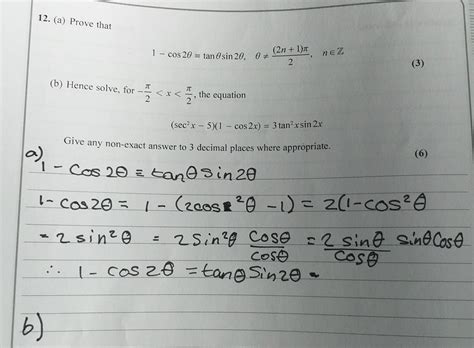 12. (a) Prove that
1 − cos 2θ = tan θ sin 2θ, θ ≠ (2n + 1)π/2, n ∈ ℤ
(3)
(b) Hence solve, for −π/2 < x < π/2, the equation
(sec²x − 5)(1 − cos 2x) = 3 tan²x sin 2x
Give any non-exact answer to 3 decimal places where appropriate.
(6)
a)
1 - Cos 2θ ≡ tanθ Sin 2θ
1 - cos2θ = 1 - (2cos²θ - 1) = 2(1-cos²θ
= 2 sin²θ = 2 Sin²θ Cosθ/cosθ = 2 sinθ/Cosθ sinθ Cosθ
∴ 1 - cos 2θ = tanθ Sin 2θ
b)